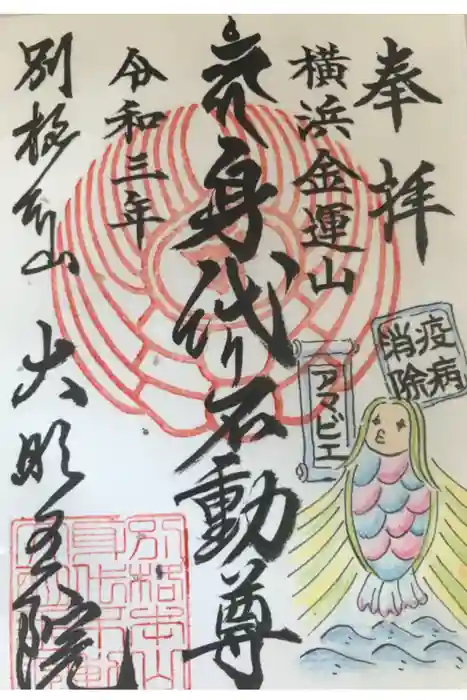 奉拝
横浜金運山
身代り不動尊
令和三年
別格本山 大明王院
疫病
消除
アマビエ